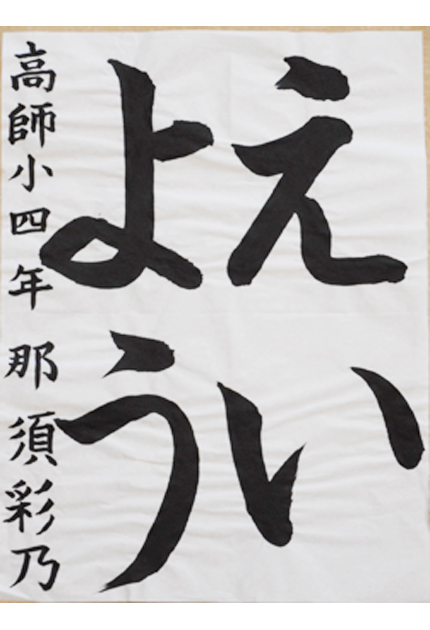 えい
よう
高師小四年 那須彩乃